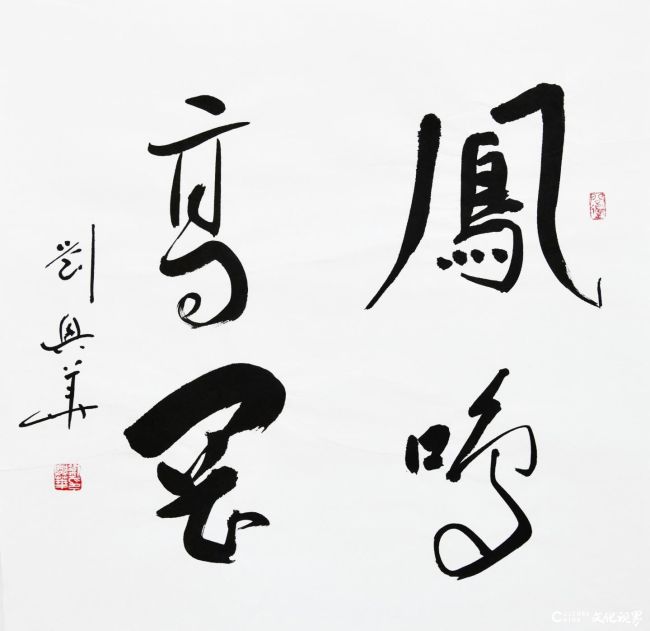 鳳鳴
高岡
劉興華
文化视界